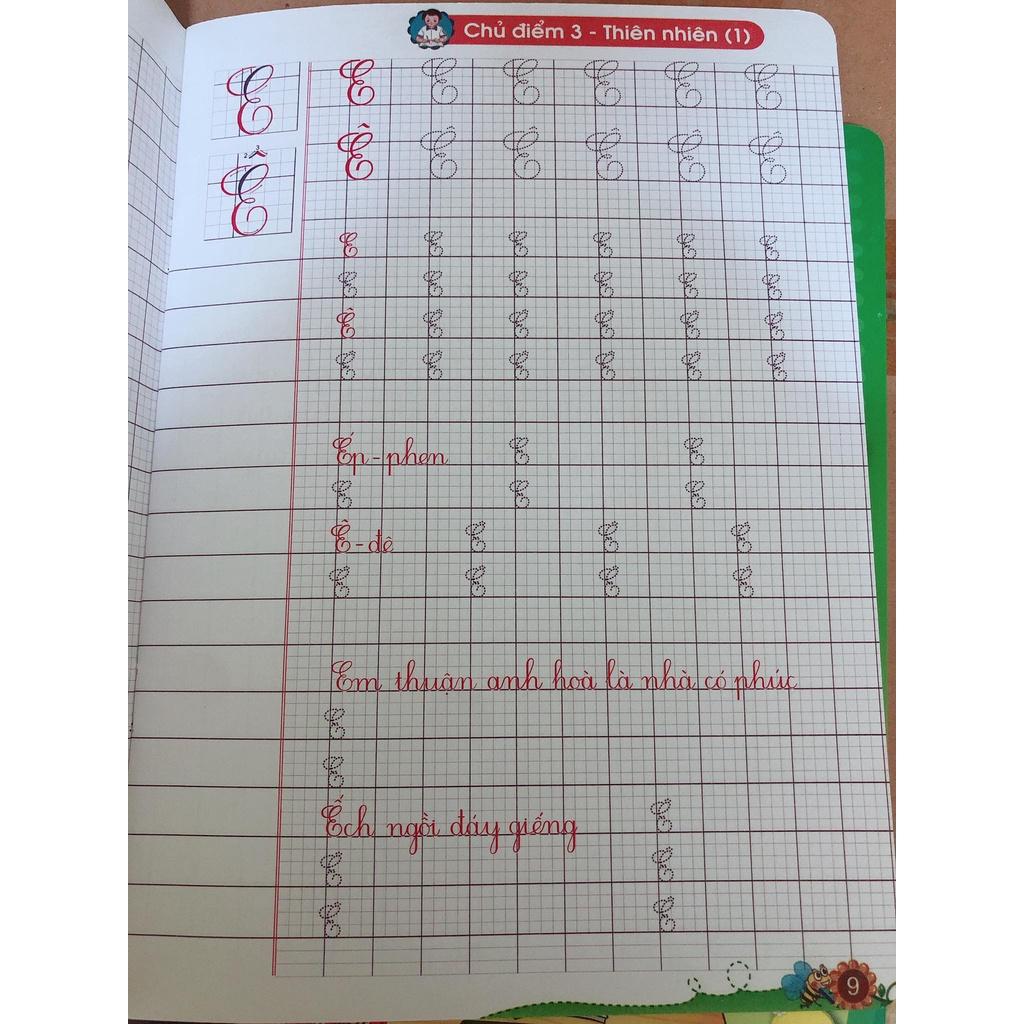 Chủ điểm 3 - Thiên nhiên (1)
E E E E E E E
Ê Ê Ê Ê Ê Ê Ê
E E E E E E
E E E E E E
Ê Ê Ê Ê Ê Ê
Ê Ê Ê Ê Ê Ê
Ép-phen E E
E E E
Ê-đê Ê Ê Ê
Ê Ê Ê Ê
Em thuận anh hoà là nhà có phúc
E
E
Ếch ngồi đáy giếng Ê
Ê Ê
Ê Ê
9